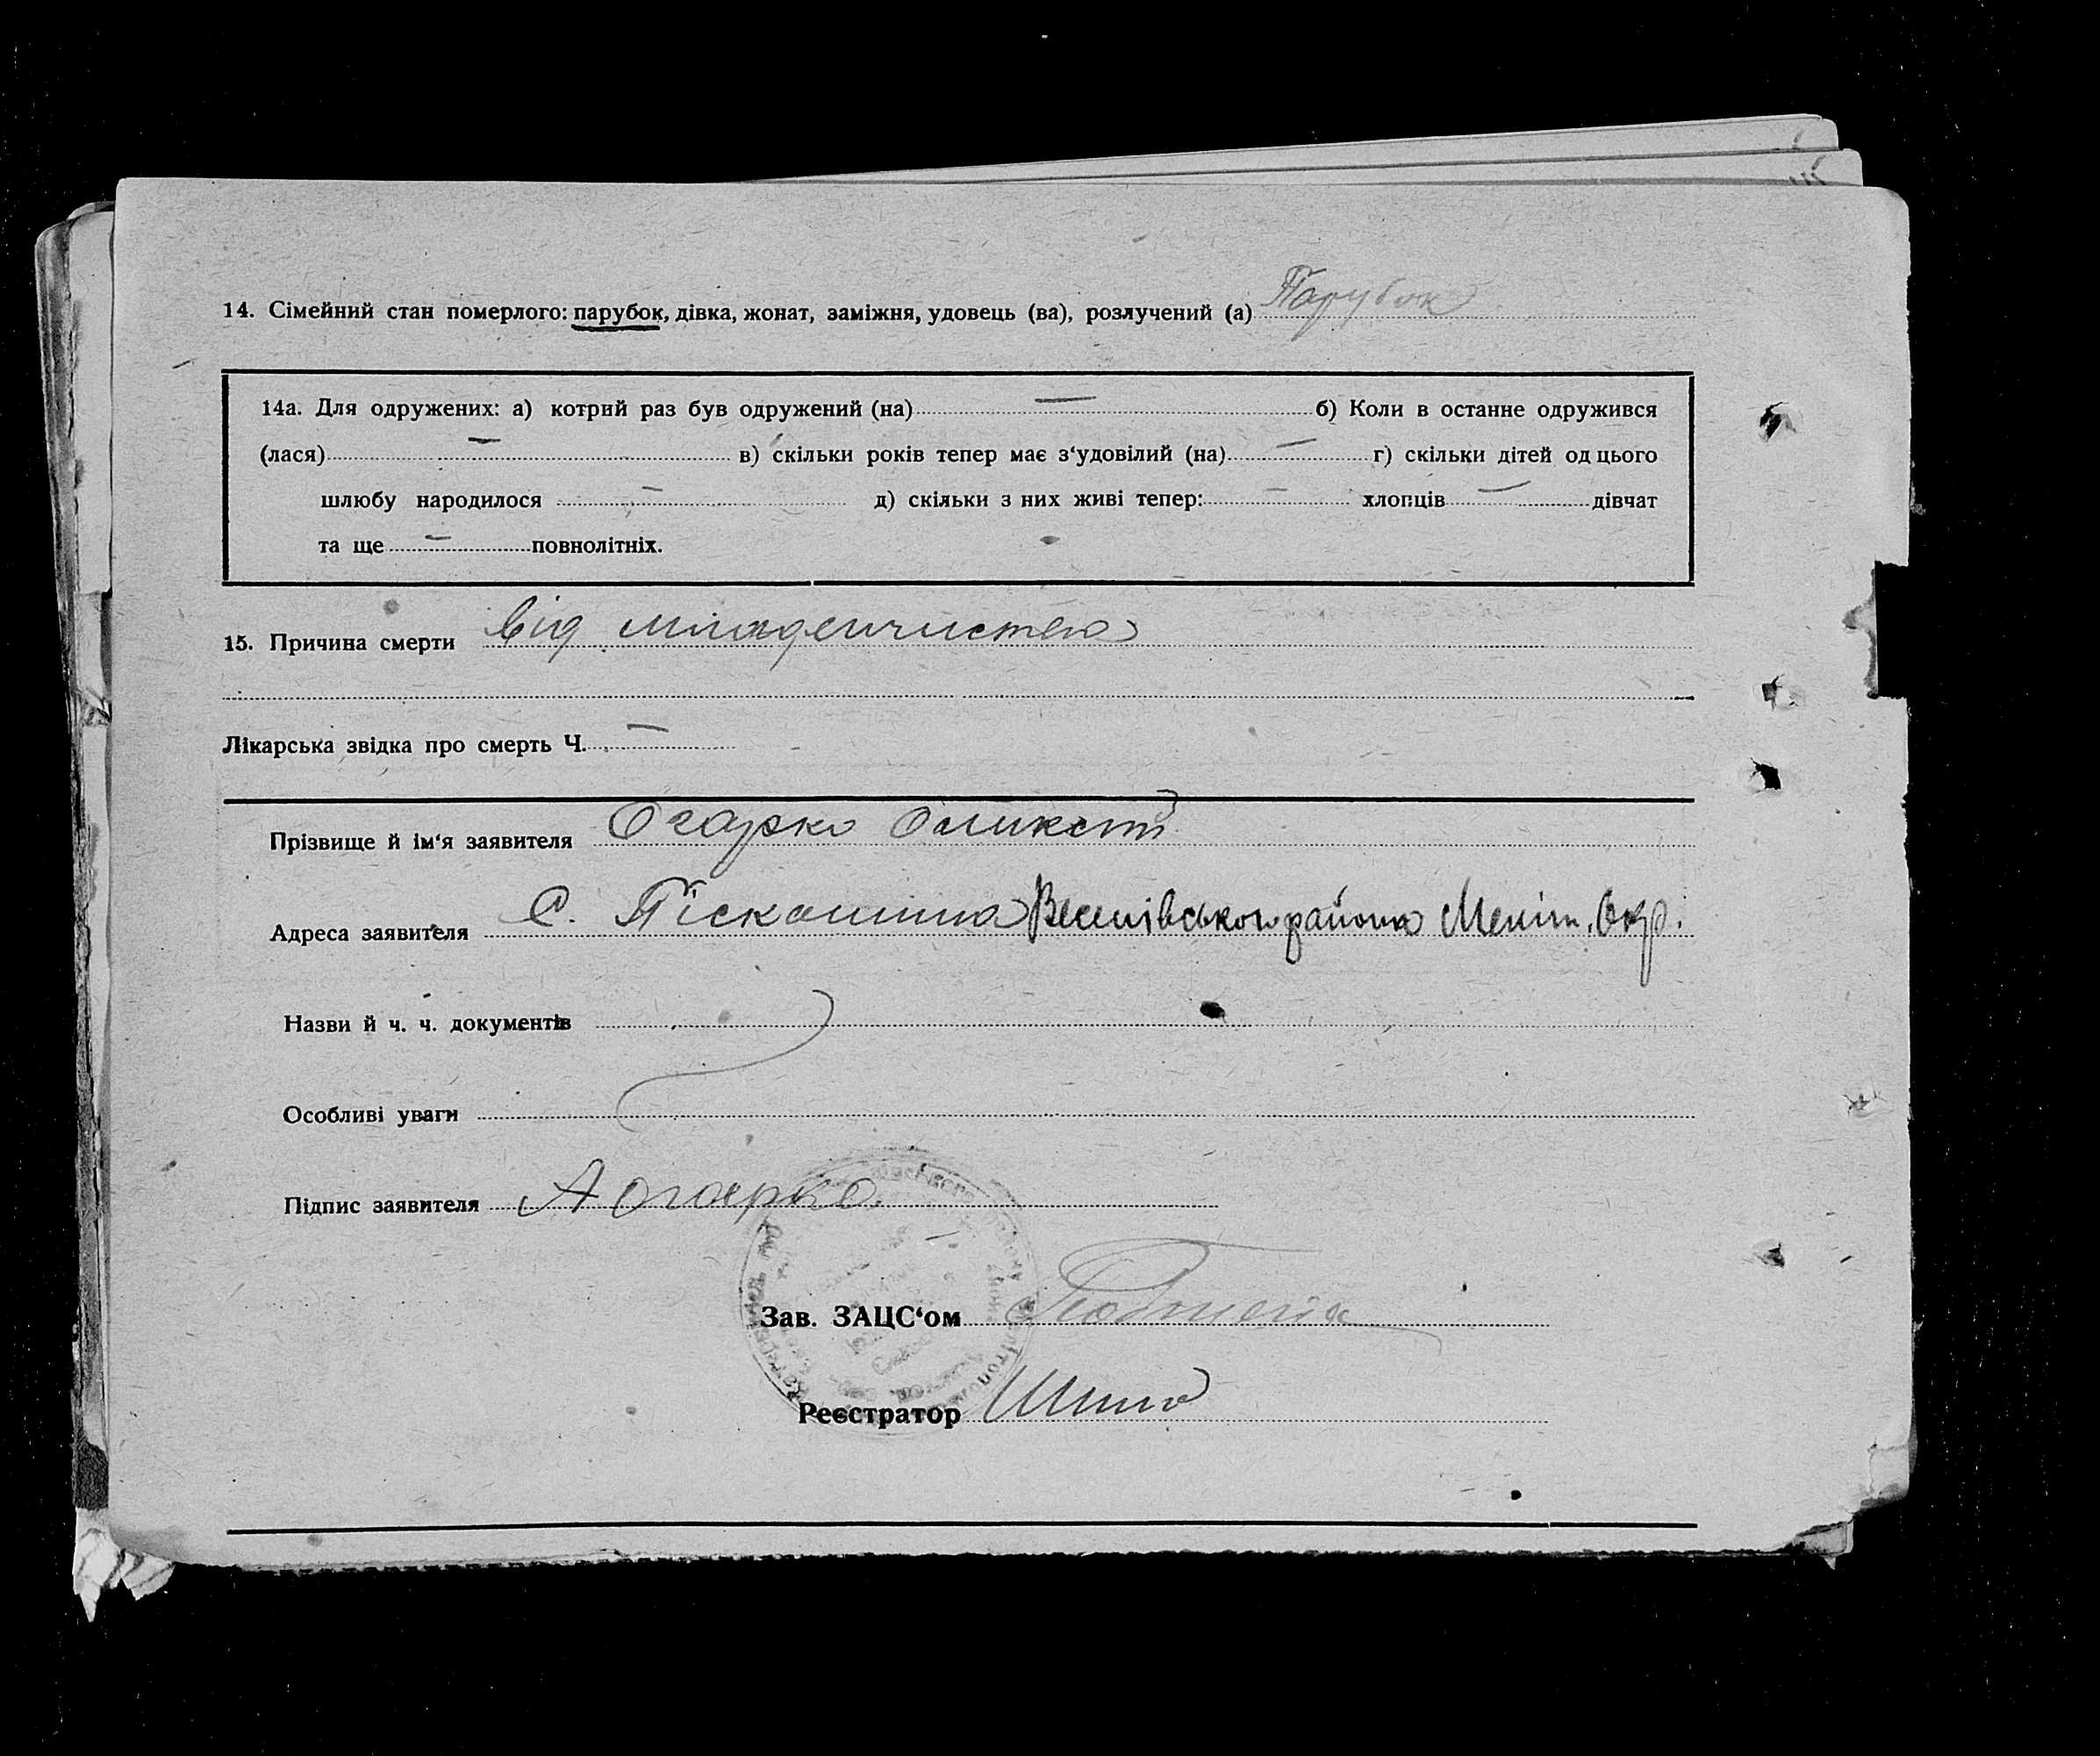 14. Сімейний стан померлого: парубок, дівка, жонат, заміжня, удовець (ва), розлучений (а) Парубок
14а. Для одружених: а) котрий раз був одружений (на) — б) Коли в останне одружився
(лася) — в) скільки років тепер має з‘удовілий (на) — г) скільки дітей од цього
шлюбу народилося — д) скільки з них живі тепер: — хлопців — дівчат
та ще — повнолітніх.
15. Причина смерти від младенчиства
Лікарська звідка про смерть Ч. —
Прізвище й ім‘я заявителя Огарко
Адреса заявителя С. Піскошина Веселівського района Меліт. Окр.
Назви й ч. ч. документів
Особливі уваги
Підпис заявителя А Огарко
Зав. ЗАЦС‘ом
Реєстратор